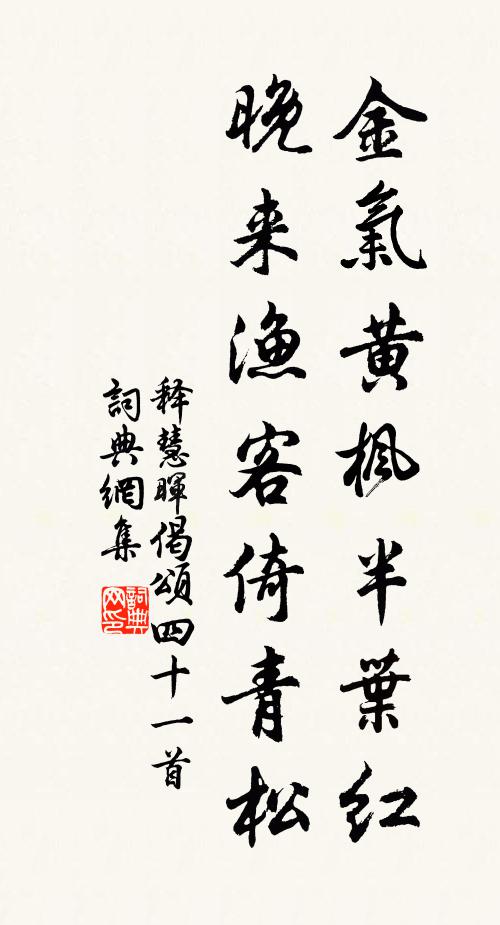 金氣黄楓半葉红
晚来漁客倚青松
释慧暉偈頌四十一首
詞典網集
詞典网印